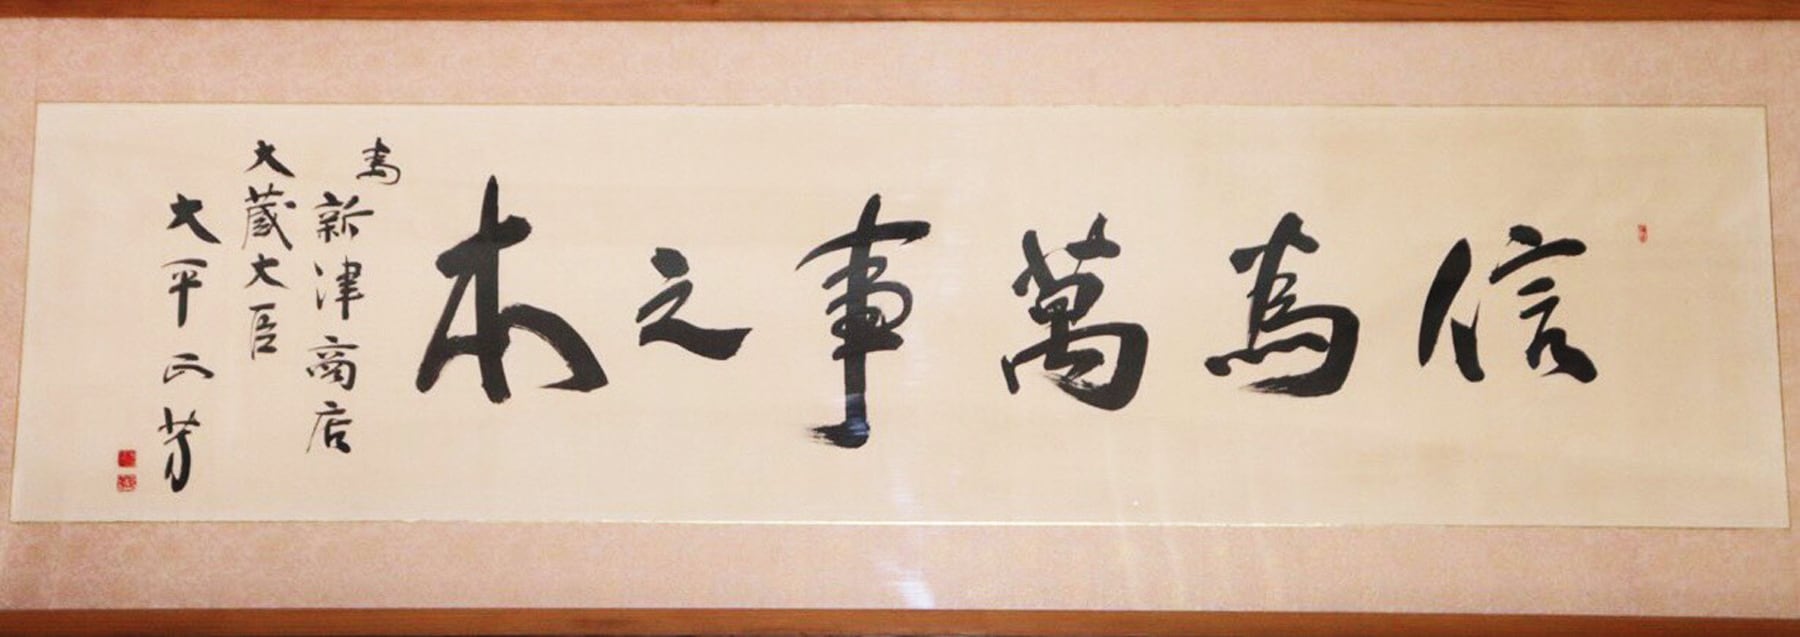 信為萬事之本
為
新津商店
大蔵大臣
大平正芳